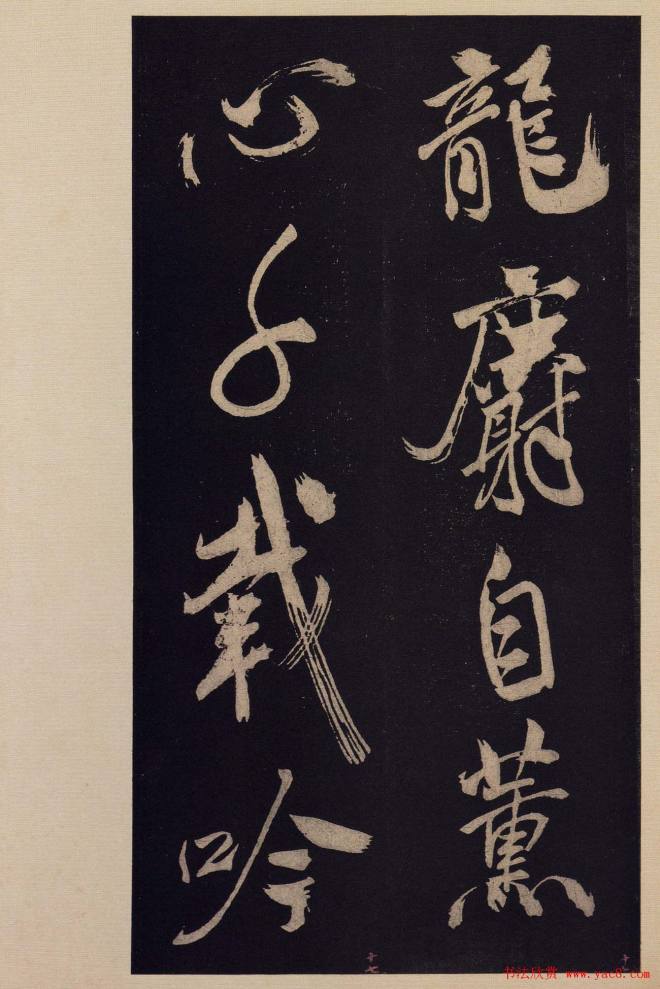 龍麝自薰
心千載吟
十七
十
书法欣赏 www.yac8.com